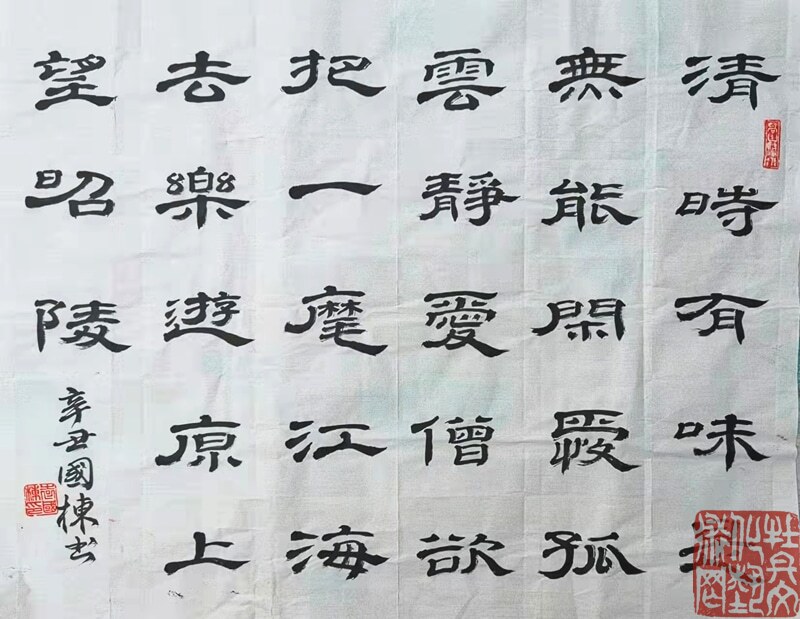 清時有味
無能閑愛孤
雲靜愛僧欲
把一麾江海
去樂遊原上
望昭陵
辛丑國棟书